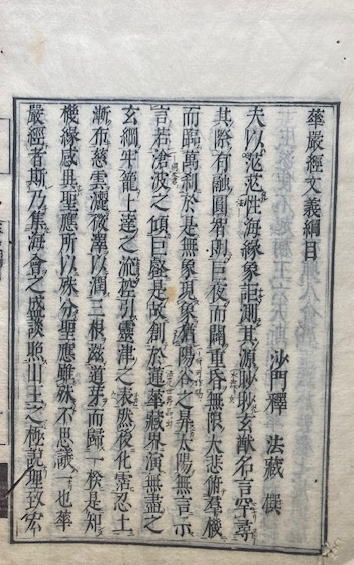 華嚴經文義綱目
沙門釋 法藏 撰
夫以茫茫性海緣象詎測其源眇眇玄猷名言罕尋
其際有融圓智朗巨夜而闢重昏無限大悲俯羣機
而臨萬刹於是無象現象猶陽谷之昇太陽無言示
言若滄波之傾巨壑是故創於蓮華藏界演無盡之
玄綱牢籠上達之流控引靈津之表然後化霑忍土
漸布慈雲灑微澤以潤三根滋道芽而歸一揆是知
機緣感異聖應所以殊分聖應雖殊不思議一也華
嚴經者斯乃集海會之盛談照山王之極說理致宏